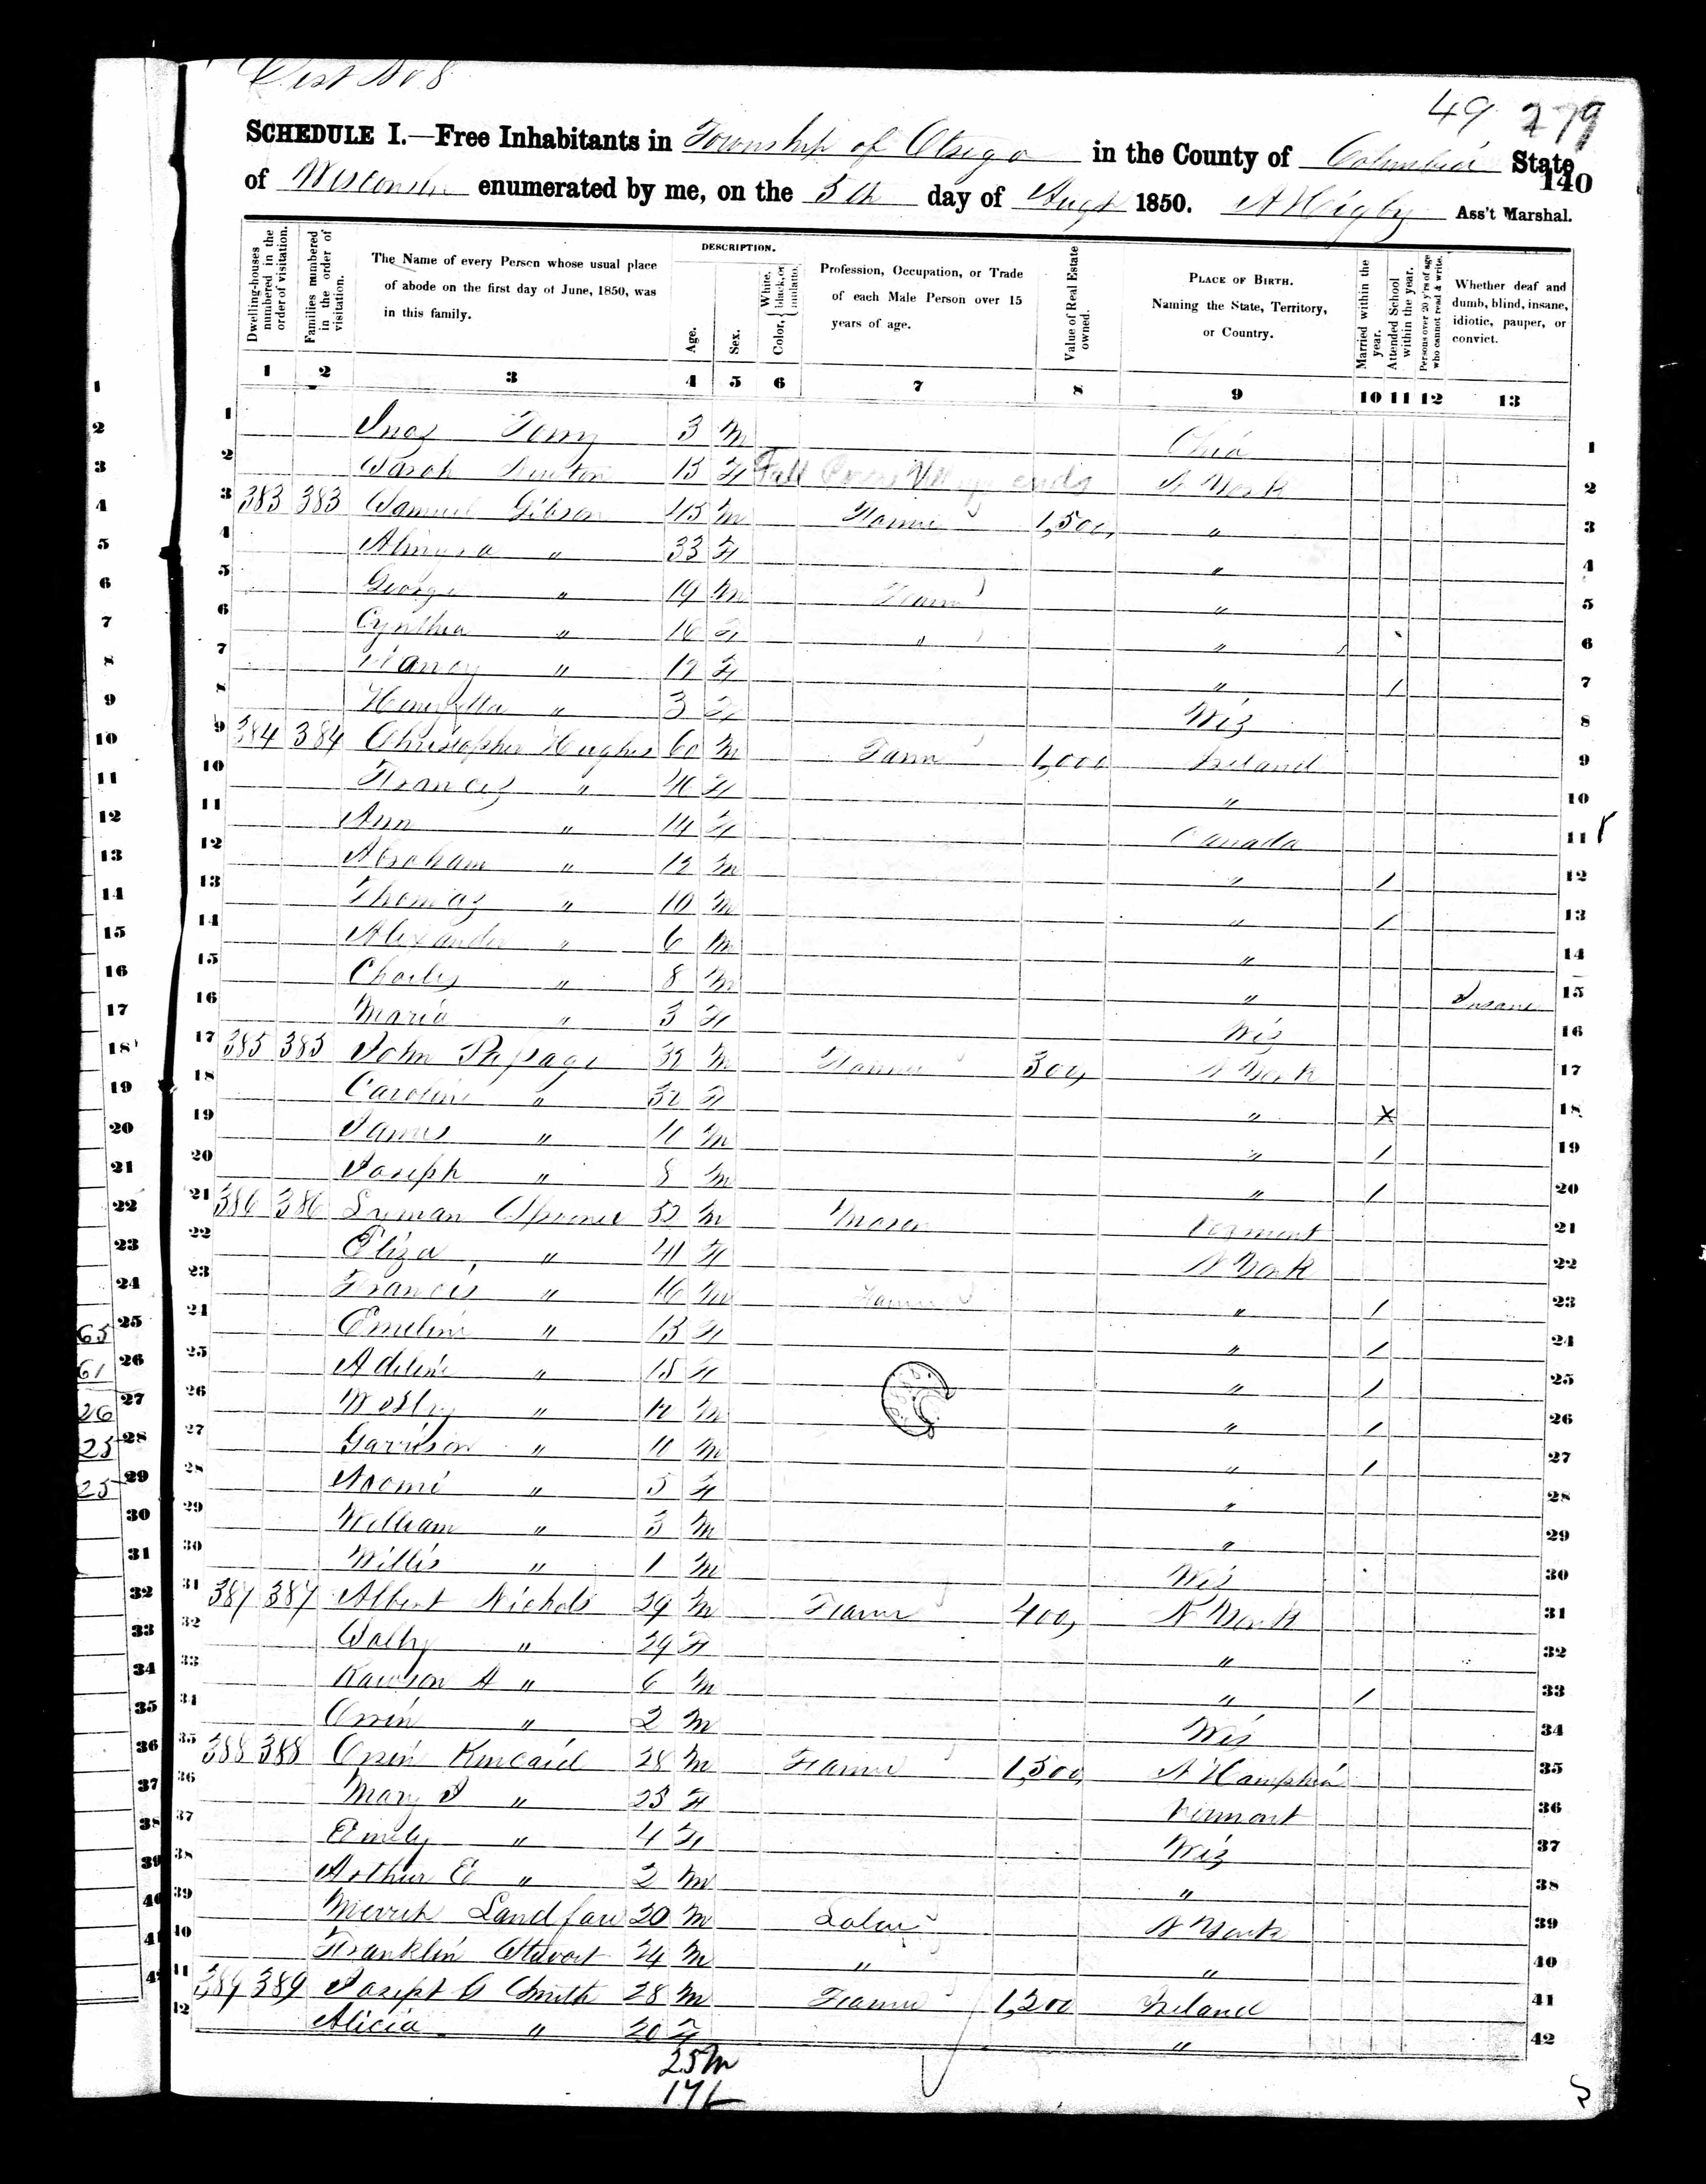 Dist No 8
49 279
SCHEDULE I.—Free Inhabitants in Township of Otsego in the County of Columbia State
140
of Wisconsin enumerated by me, on the 5th day of Augt 1850. A Higby Ass't Marshal.
Dwelling-houses numbered in the order of visitation.
Families numbered in the order of visitation.
The Name of every Person whose usual place of abode on the first day of June, 1850, was in this family.
DESCRIPTION.
Age.
Sex.
Color, White, black, or mulatto.
Profession, Occupation, or Trade of each Male Person over 15 years of age.
Value of Real Estate owned.
PLACE OF BIRTH. Naming the State, Territory, or Country.
Married within the year.
Attended School within the year.
Persons over 20 y'rs of age who cannot read & write.
Whether deaf and dumb, blind, insane, idiotic, pauper, or convict.
1 2 3 4 5 6 7 8 9 10 11 12 13
1 3 M Ohio 1
2 Sarah Newton 13 F Fall River Village ends N York 2
3 383 383 Samuel Gibson 45 M Farmer 1,500, " 3
4 Almyra " 33 F " 4
5 George " 19 M Farmer " 5
6 Cynthia " 16 F " " 6
7 Nancy " 12 F " / 7
8 Henryetta " 3 F Wis 8
9 384 384 Christopher Hughes 60 M Farm 1,000 Ireland 9
10 Frances " 46 F " 10
11 Ann " 14 F Canada 11
12 Abraham " 12 M " / 12
13 Thomas " 10 M " / 13
14 Alexander " 6 M " 14
15 Charles " 8 M " Insane 15
16 Maria " 3 F Wis 16
17 385 385 John 32 M Farmer 300, N York 17
18 Caroline " 32 F " X 18
19 James " 10 M " / 19
20 Joseph " 8 M " / 20
21 386 386 Lyman Spooner 52 M Mason Vermont 21
22 Eliza " 41 F N York 22
23 Francis " 16 M Farmer " / 23
24 Emeline " 13 F " / 24
25 Adeline " 15 F " / 25
26 Wesley " 12 M " / 26
27 Garrison " 11 M " / 27
28 Naomi " 5 F " 28
29 William " 3 M " 29
30 Willis " 1 M Wis 30
31 387 387 Albert Nichols 29 M Farmer 400, N York 31
32 Sally " 29 F " 32
33 Rawson A " 6 M " / 33
34 Orrin " 2 M Wis 34
35 388 388 Orrin Kincaid 28 M Farmer 1,500, N Hampshire 35
36 Mary " 25 F Vermont 36
37 Emely " 4 F Wis 37
38 Arthur E " 2 M " 38
39 Merrit Landfare 20 M Labor N York 39
40 Franklin Stewart 24 M " " 40
41 389 389 Joseph Smith 28 M Farmer 1,200 Ireland 41
42 Alicia " 20 F " 42
25 M
17 F